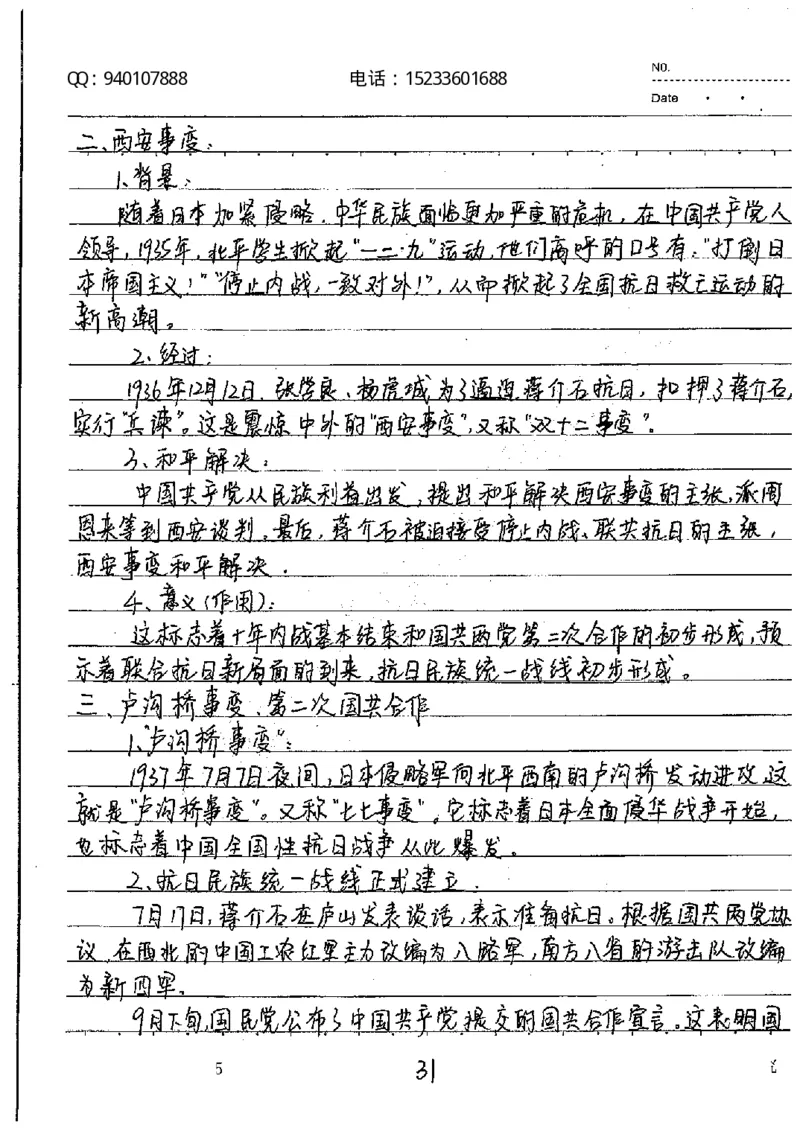 QQ：940107888 电话：15233601688 NO.
Date
二、西安事变：
1、背景：
随着日本加紧侵略，中华民族面临更加严重的危机，在中国共产党人
领导，1935年，北平学生掀起“一二·九”运动，他们高呼的口号有：“打倒日
本帝国主义！”“停止内战，一致对外！”，从而掀起了全国抗日救亡运动的
新高潮。
2、经过：
1936年12月12日，张学良、杨虎城为了逼迫蒋介石抗日，扣押了蒋介石，
实行“兵谏”。这是震惊中外的“西安事变”，又称“双十二事变”。
3、和平解决：
中国共产党从民族利益出发，提出和平解决西安事变的主张，派周
恩来等到西安谈判，最后，蒋介石被迫接受停止内战、联共抗日的主张，
西安事变和平解决．
4、意义（作用）：
这标志着十年内战基本结束和国共两党第二次合作的初步形成，预
示着联合抗日新局面的到来，抗日民族统一战线初步形成。
三、卢沟桥事变、第二次国共合作
1、“卢沟桥事变”：
1937年7月7日夜间，日本侵略军向北平西南的卢沟桥发动进攻，这
就是“卢沟桥事变”。又称“七七事变”，它标志着日本全面侵华战争开始，
也标志着中国全国性抗日战争从此爆发。
2、抗日民族统一战线正式建立．
7月17日，蒋介石在庐山发表谈话，表示准备抗日。根据国共两党协
议，在西北的中国工农红军主力改编为八略军，南方八省的游击队改编
为新四军。
9月下旬，国民党公布了中国共产党提交的国共合作宣言。这表明国
5 31